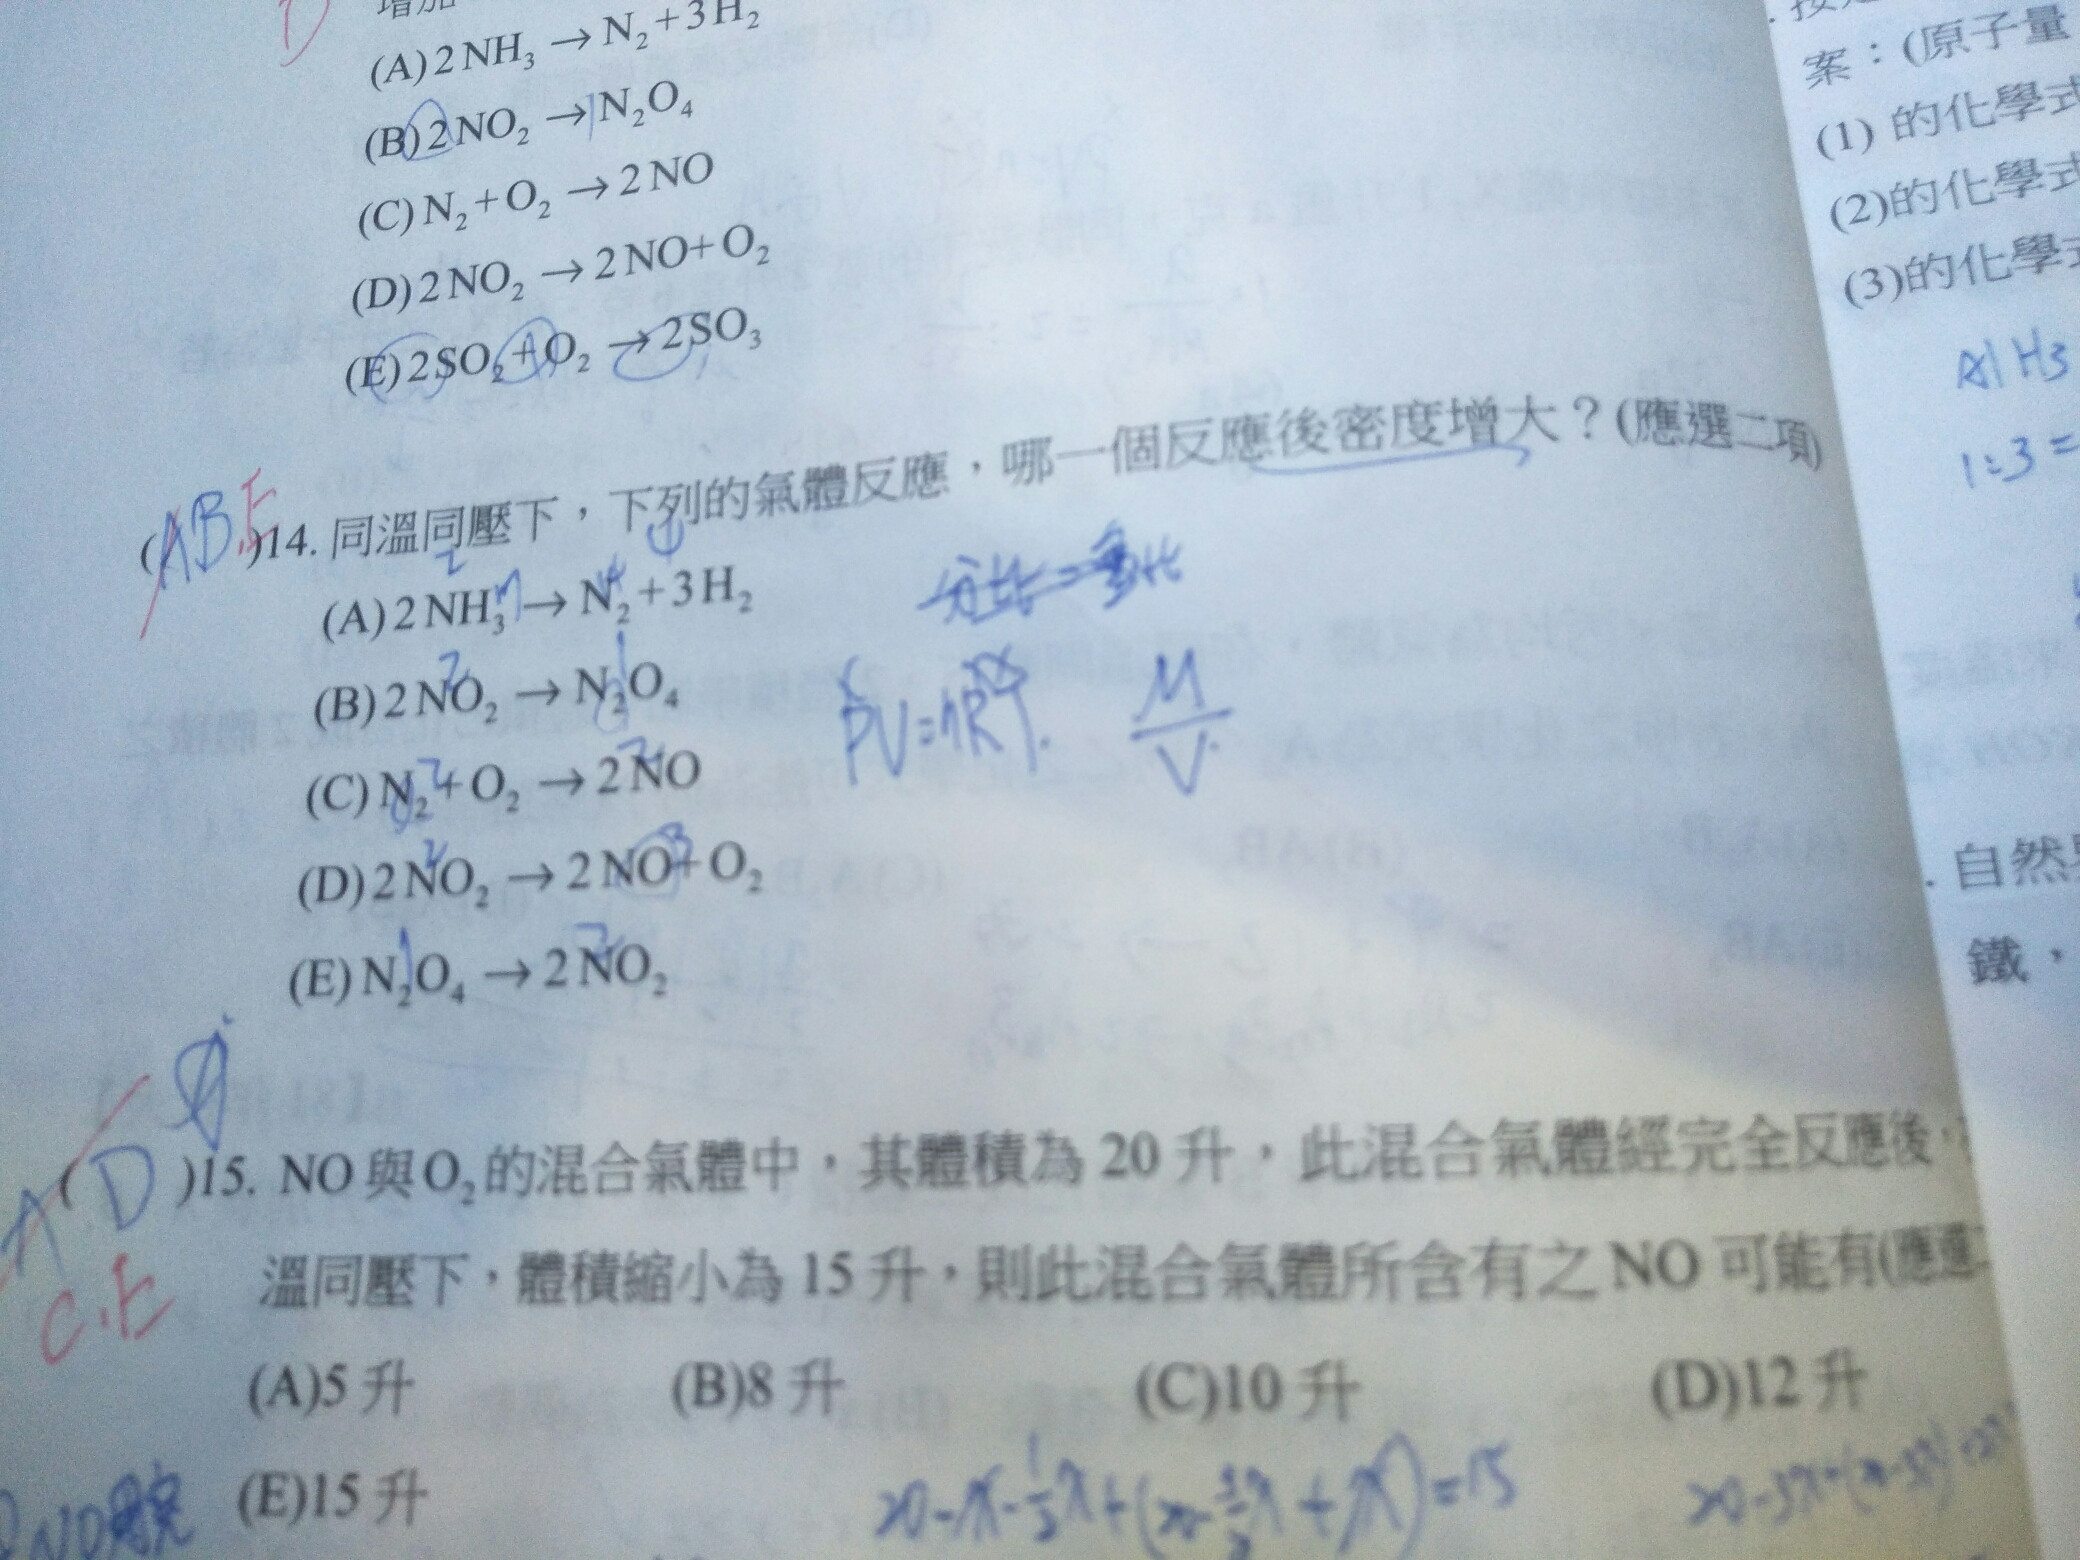 增加
(A) 2NH₃ → N₂+3H₂
(B) 2NO₂ → N₂O₄
(C) N₂+O₂ → 2NO
(D) 2NO₂ → 2NO+O₂
(E) 2SO₂+O₂ → 2SO₃
(AB.E)14. 同溫同壓下，下列的氣體反應，哪一個反應後密度增大？(應選二項)
(A) 2NH₃ → N₂+3H₂
(B) 2NO₂ → N₂O₄
PV=nRT. M/V
(C) N₂+O₂ → 2NO
(D) 2NO₂ → 2NO+O₂
(E) N₂O₄ → 2NO₂
(A D)15. NO與O₂的混合氣體中，其體積為20升，此混合氣體經完全反應後，
C.E
溫同壓下，體積縮小為15升，則此混合氣體所含有之NO可能有(應選
(A)5升 (B)8升 (C)10升 (D)12升
(E)15升
案：(原子量
(1) 的化學式
(2)的化學式
(3)的化學式
AlH3
1:3=
自然
鐵，